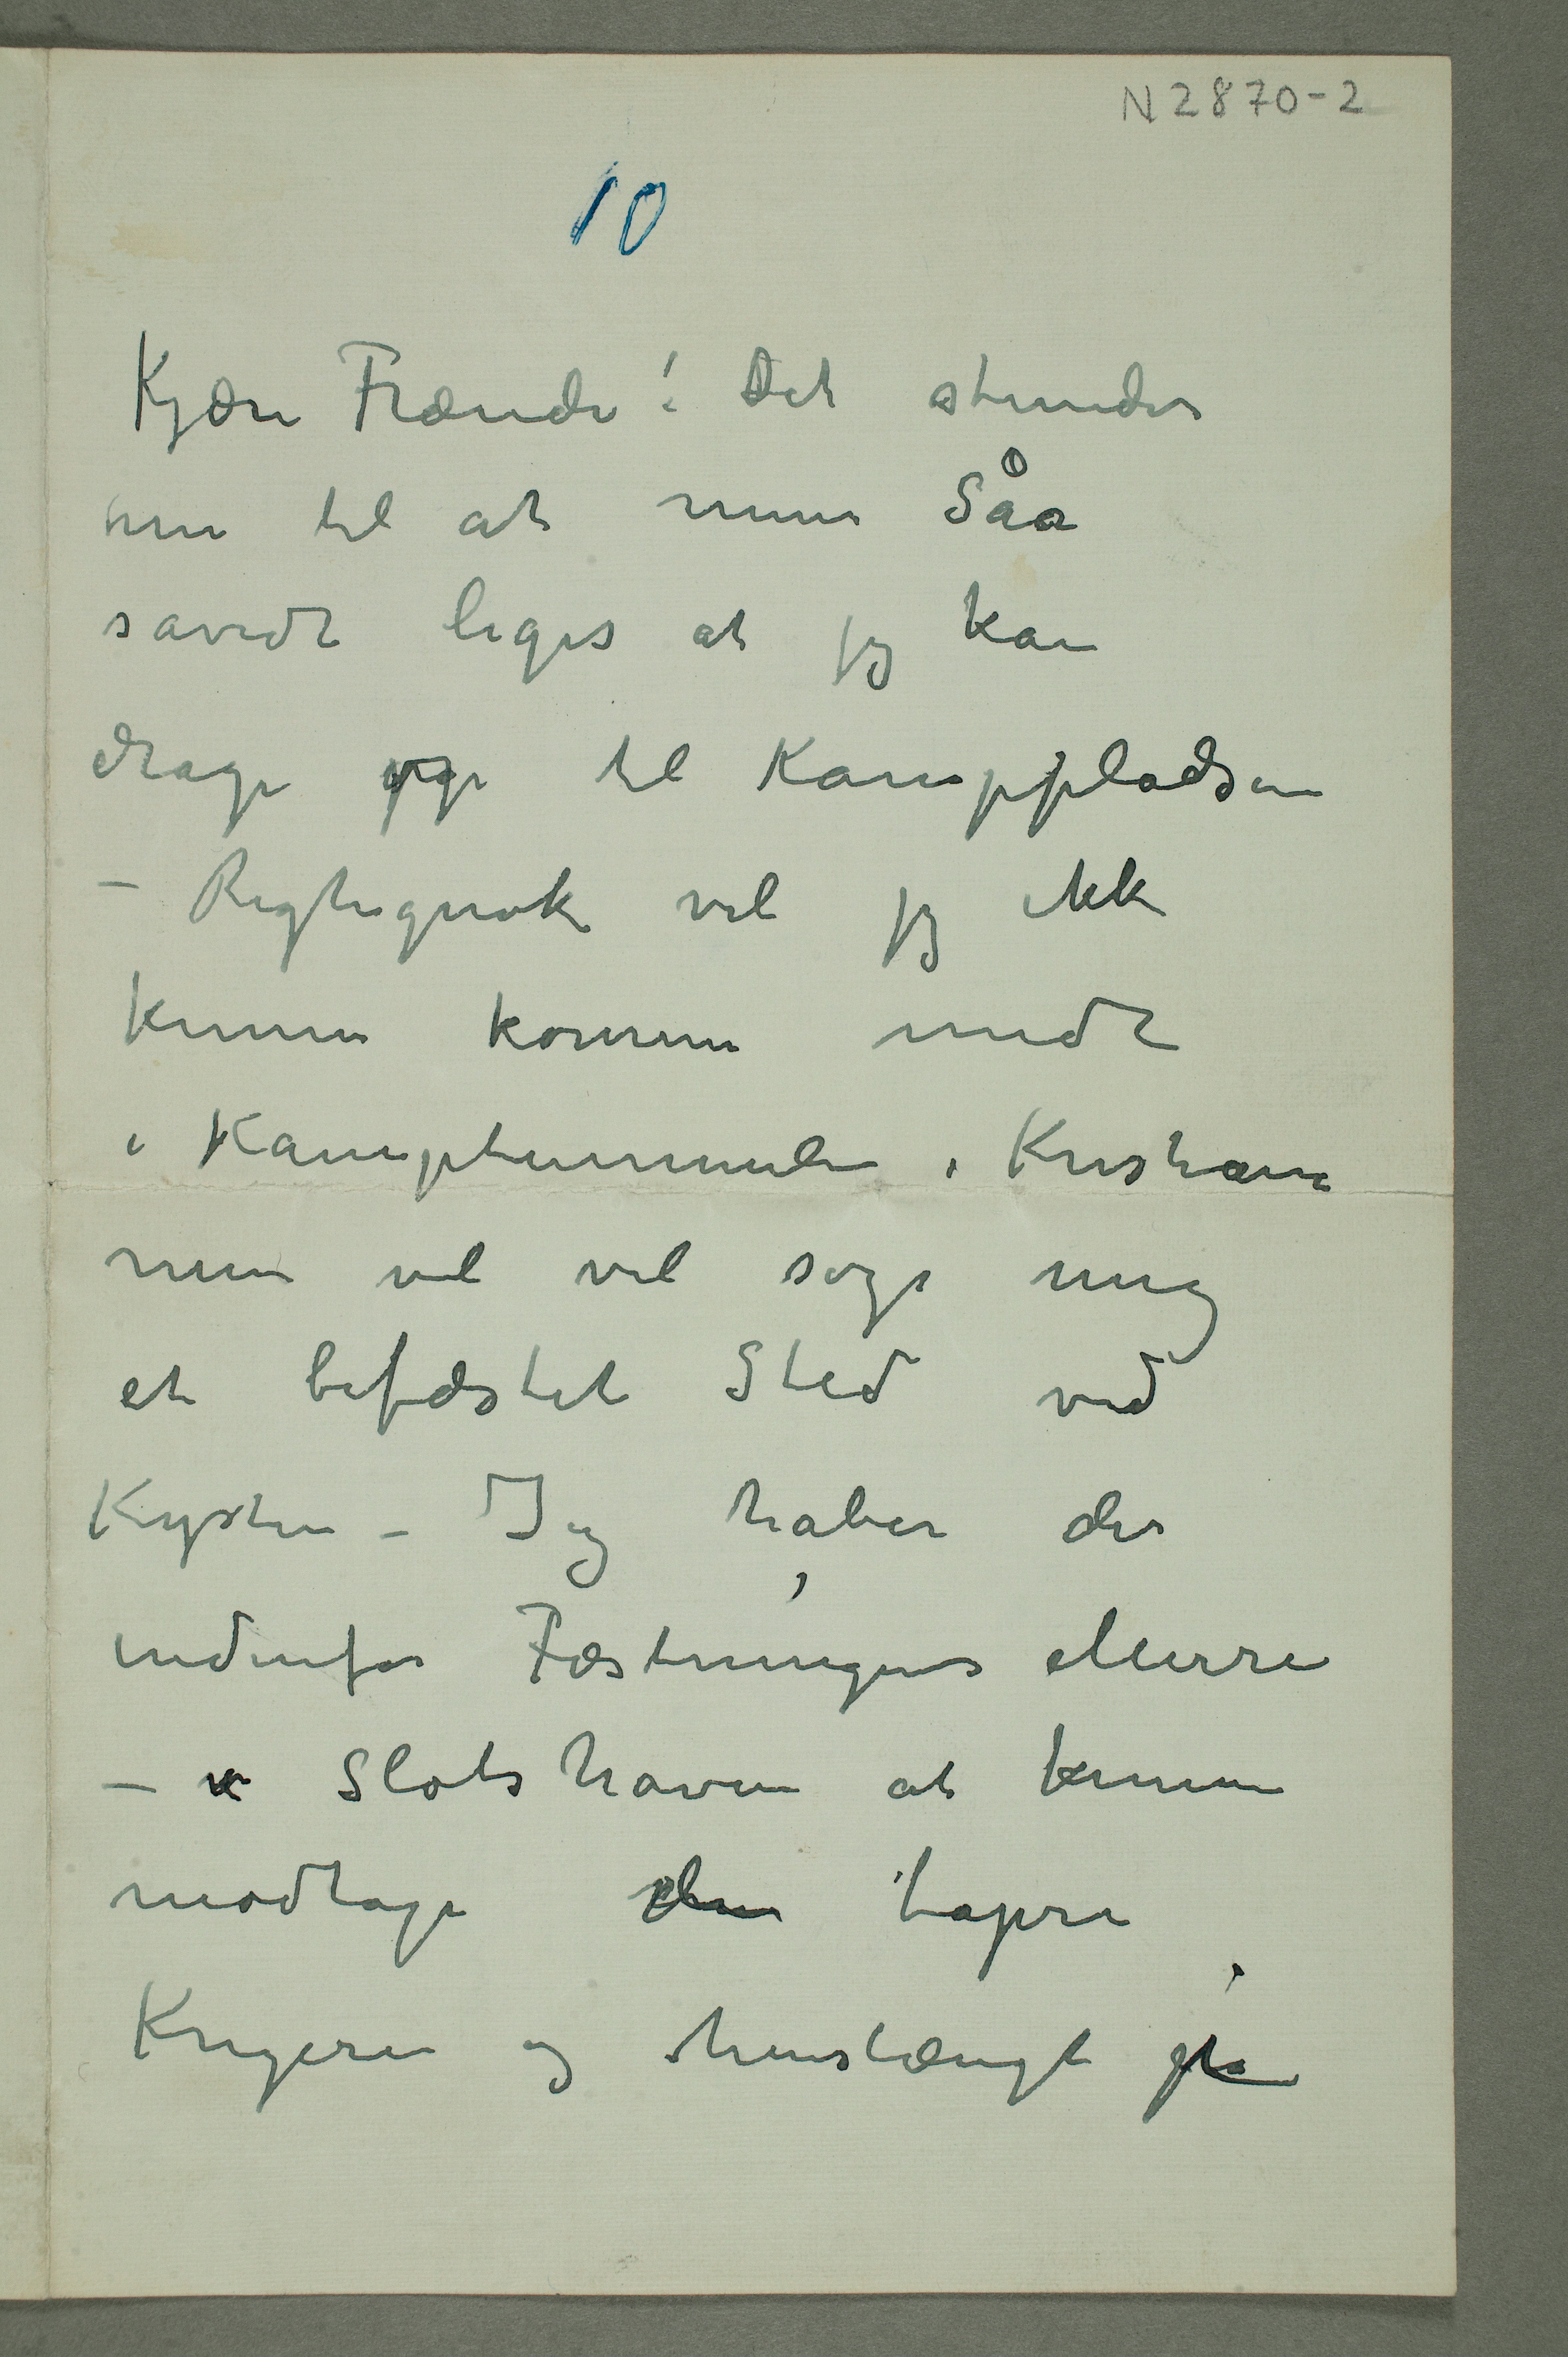 N 2870-2
10
Kjære Frænde! Det stunder
nu til at mine Såa
såvidt læges at jeg kan
drage til Kamppladsen
– Rigtignok vil jeg ikke
kunne komme midt
i Kamptummelen i Kristiania
men vil vel søge mig
et befæstet Sted ved
Kysten – Jeg håber der
indenfor Fæstningens Murre
– Slotshaven at kunne
modtage den tapre
Krigere og henslængt på